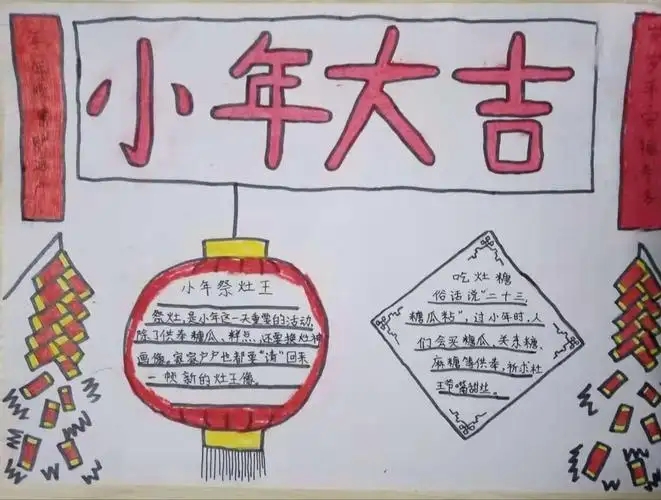 小年大吉
小年祭灶王
祭灶,是小年这一天重要的活动,
除了供奉糖瓜、糕点,还要换灶神
画像。家家户户也都要"请"回来
一帧新的灶王像。
吃灶糖
俗话说"二十三,
糖瓜粘",过小年时,人
们会买糖瓜、关东糖、
麻糖等供奉,祈求灶
王爷嘴甜些。